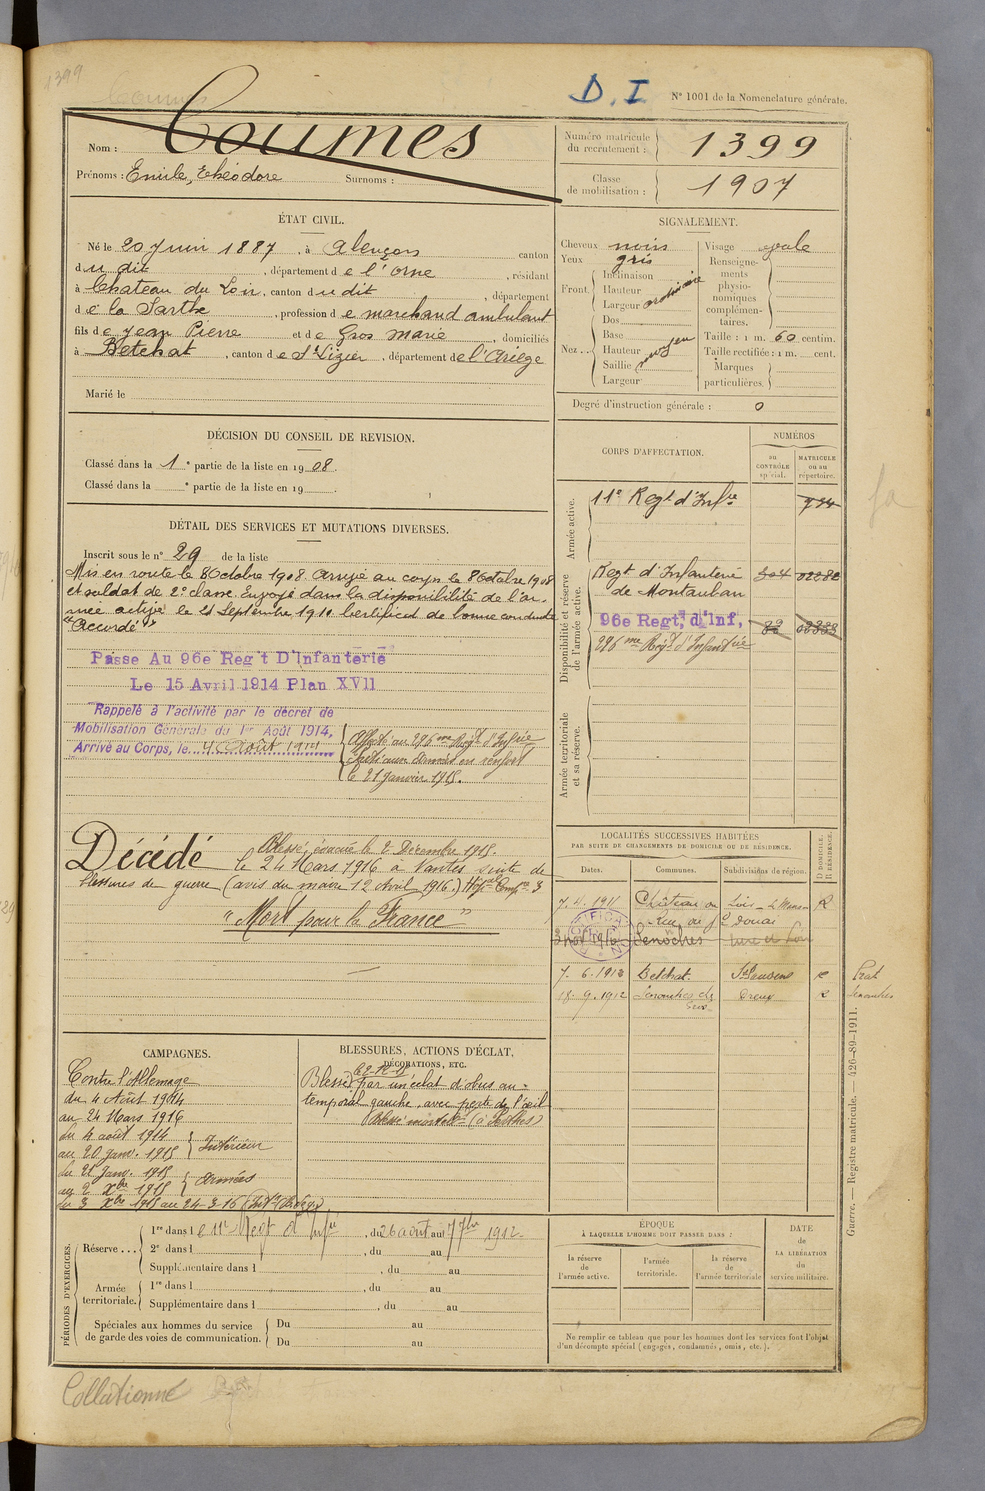 1399
Coumes
D. I
N° 1001 de la Nomenclature générale.
Nom : Coumes
Prénoms : Emile, Théodore Surnoms :
Numéro matricule du recrutement : 1399
Classe de mobilisation : 1907
ÉTAT CIVIL.
Né le 20 Juin 1887, à Alençon canton
du dit, département de l'Orne, résidant
à Chateau du Loir, canton du dit, département
de la Sarthe, profession de marchand ambulant
fils de Jean Pierre et de Gros Marie, domiciliés
à Betchat, canton de St Lizier, département de l'Ariège
Marié le
SIGNALEMENT.
Cheveux noirs
Yeux gris
Front. Inclinaison
Hauteur
Largeur ordinaire
Nez... Dos
Base
Hauteur moyen
Saillie
Largeur
Visage ovale
Renseignements physionomiques complémentaires.
Taille : 1 m. 60 centim.
Taille rectifiée : 1 m. cent.
Marques particulières.
Degré d'instruction générale : 0
DÉCISION DU CONSEIL DE REVISION.
Classé dans la 1e partie de la liste en 1908.
Classé dans la e partie de la liste en 19
DÉTAIL DES SERVICES ET MUTATIONS DIVERSES.
Inscrit sous le n° 29 de la liste
Mis en route le 8 Octobre 1908. Arrivé au corps le 8 Octobre 1908
et soldat de 2e classe. Envoyé dans la disponibilité de l'ar-
mée active le 25 Septembre 1910. Certificat de bonne conduite
"Accordé"
Passe Au 96e Reg't D'Infanterie
Le 15 Avril 1914 Plan XVII
Rappelé à l'activité par le décret de
Mobilisation Générale du 1er Août 1914,
Arrivé au Corps, le 4 Août 1914
Affecté au 296me Régt d'Infrie
Parti aux Armées en renfort
le 21 Janvier 1915.
Blessé, évacué le 2 Décembre 1915.
Décédé le 24 Mars 1916 à Nantes suite de
blessures de guerre (avis du maire 12 Avril 1916.)
"Mort pour la France"
CORPS D'AFFECTATION.
NUMÉROS
au CONTRÔLE spécial.
MATRICULE ou au répertoire.
Armée active.
11e Regt d'Infie
Disponibilité et réserve de l'armée active.
Regt d'Infanterie
de Montauban
96e Regt, d'Inf,
296me Régt d'Infanterie
Armée territoriale et sa réserve.
LOCALITÉS SUCCESSIVES HABITÉES
PAR SUITE DE CHANGEMENTS DE DOMICILE OU DE RÉSIDENCE.
Dates. Communes. Subdivisions de région. D DOMICILE. R RÉSIDENCE.
7.4.1911 Château du Loir Le Mans R
Douai
Senoches
7.6.1912 Betchat. St Gaudens R
18.9.1912 Senonches Dreux R
CAMPAGNES.
Contre l'Allemagne
du 4 Août 1914
au 24 Mars 1916
du 4 août 1914
au 20 janv. 1915 Intérieur
du 21 Janv. 1915
au 2 Xbre 1915 armées
du 3 Xbre 1915 au 24-3-16
BLESSURES, ACTIONS D'ÉCLAT,
DÉCORATIONS, ETC.
Blessé par un éclat d'obus au
temporal gauche, avec perte de l'œil
PÉRIODES D'EXERCICES.
Réserve ... 1re dans le 11e Regt d'Infie, du 26 août au 7 7bre 1912.
2e dans l , du au
Supplémentaire dans l , du au
Armée territoriale. 1re dans l , du au
Supplémentaire dans l , du au
Spéciales aux hommes du service de garde des voies de communication. Du au
Du au
ÉPOQUE
À LAQUELLE L'HOMME DOIT PASSER DANS :
la réserve de l'armée active.
l'armée territoriale.
la réserve de l'armée territoriale
DATE de LA LIBÉRATION du service militaire.
Ne remplir ce tableau que pour les hommes dont les services font l'objet
d'un décompte spécial (engagés, condamnés, omis, etc.).
Guerre. — Registre matricule. — 426-89-1911.
Collationné